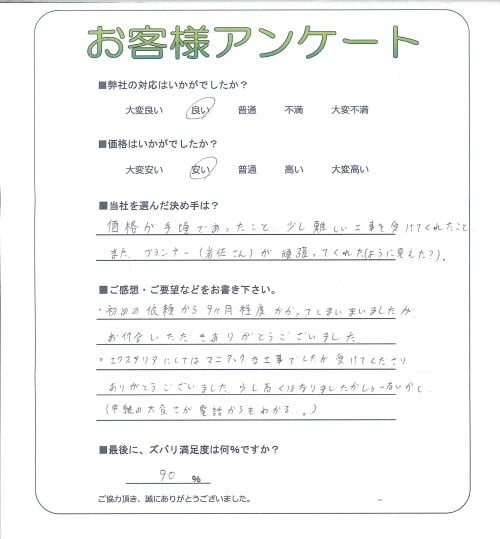 お客様アンケート
■弊社の対応はいかがでしたか？
大変良い 良い 普通 不満 大変不満
■価格はいかがでしたか？
大変安い 安い 普通 高い 大変高い
■当社を選んだ決め手は？
価格が手頃であったこと、少し難しい工事を受けてくれたこと
また、プランナー（岩佐さん）が頑張ってくれた（ように見えた？）。
■ご感想・ご要望などをお書き下さい。
・初めの依頼から9ヶ月程度かかってしまいましたが
お付合いただきありがとうございました
・エクステリアにしてはマニアックな工事でしたが受けてくださり
ありがとうございました、少し高くはなりましたが
（中継の大変さが電話からもわかる...。）
■最後に、ズバリ満足度は何％ですか？
90 %
ご協力頂き、誠にありがとうございました。